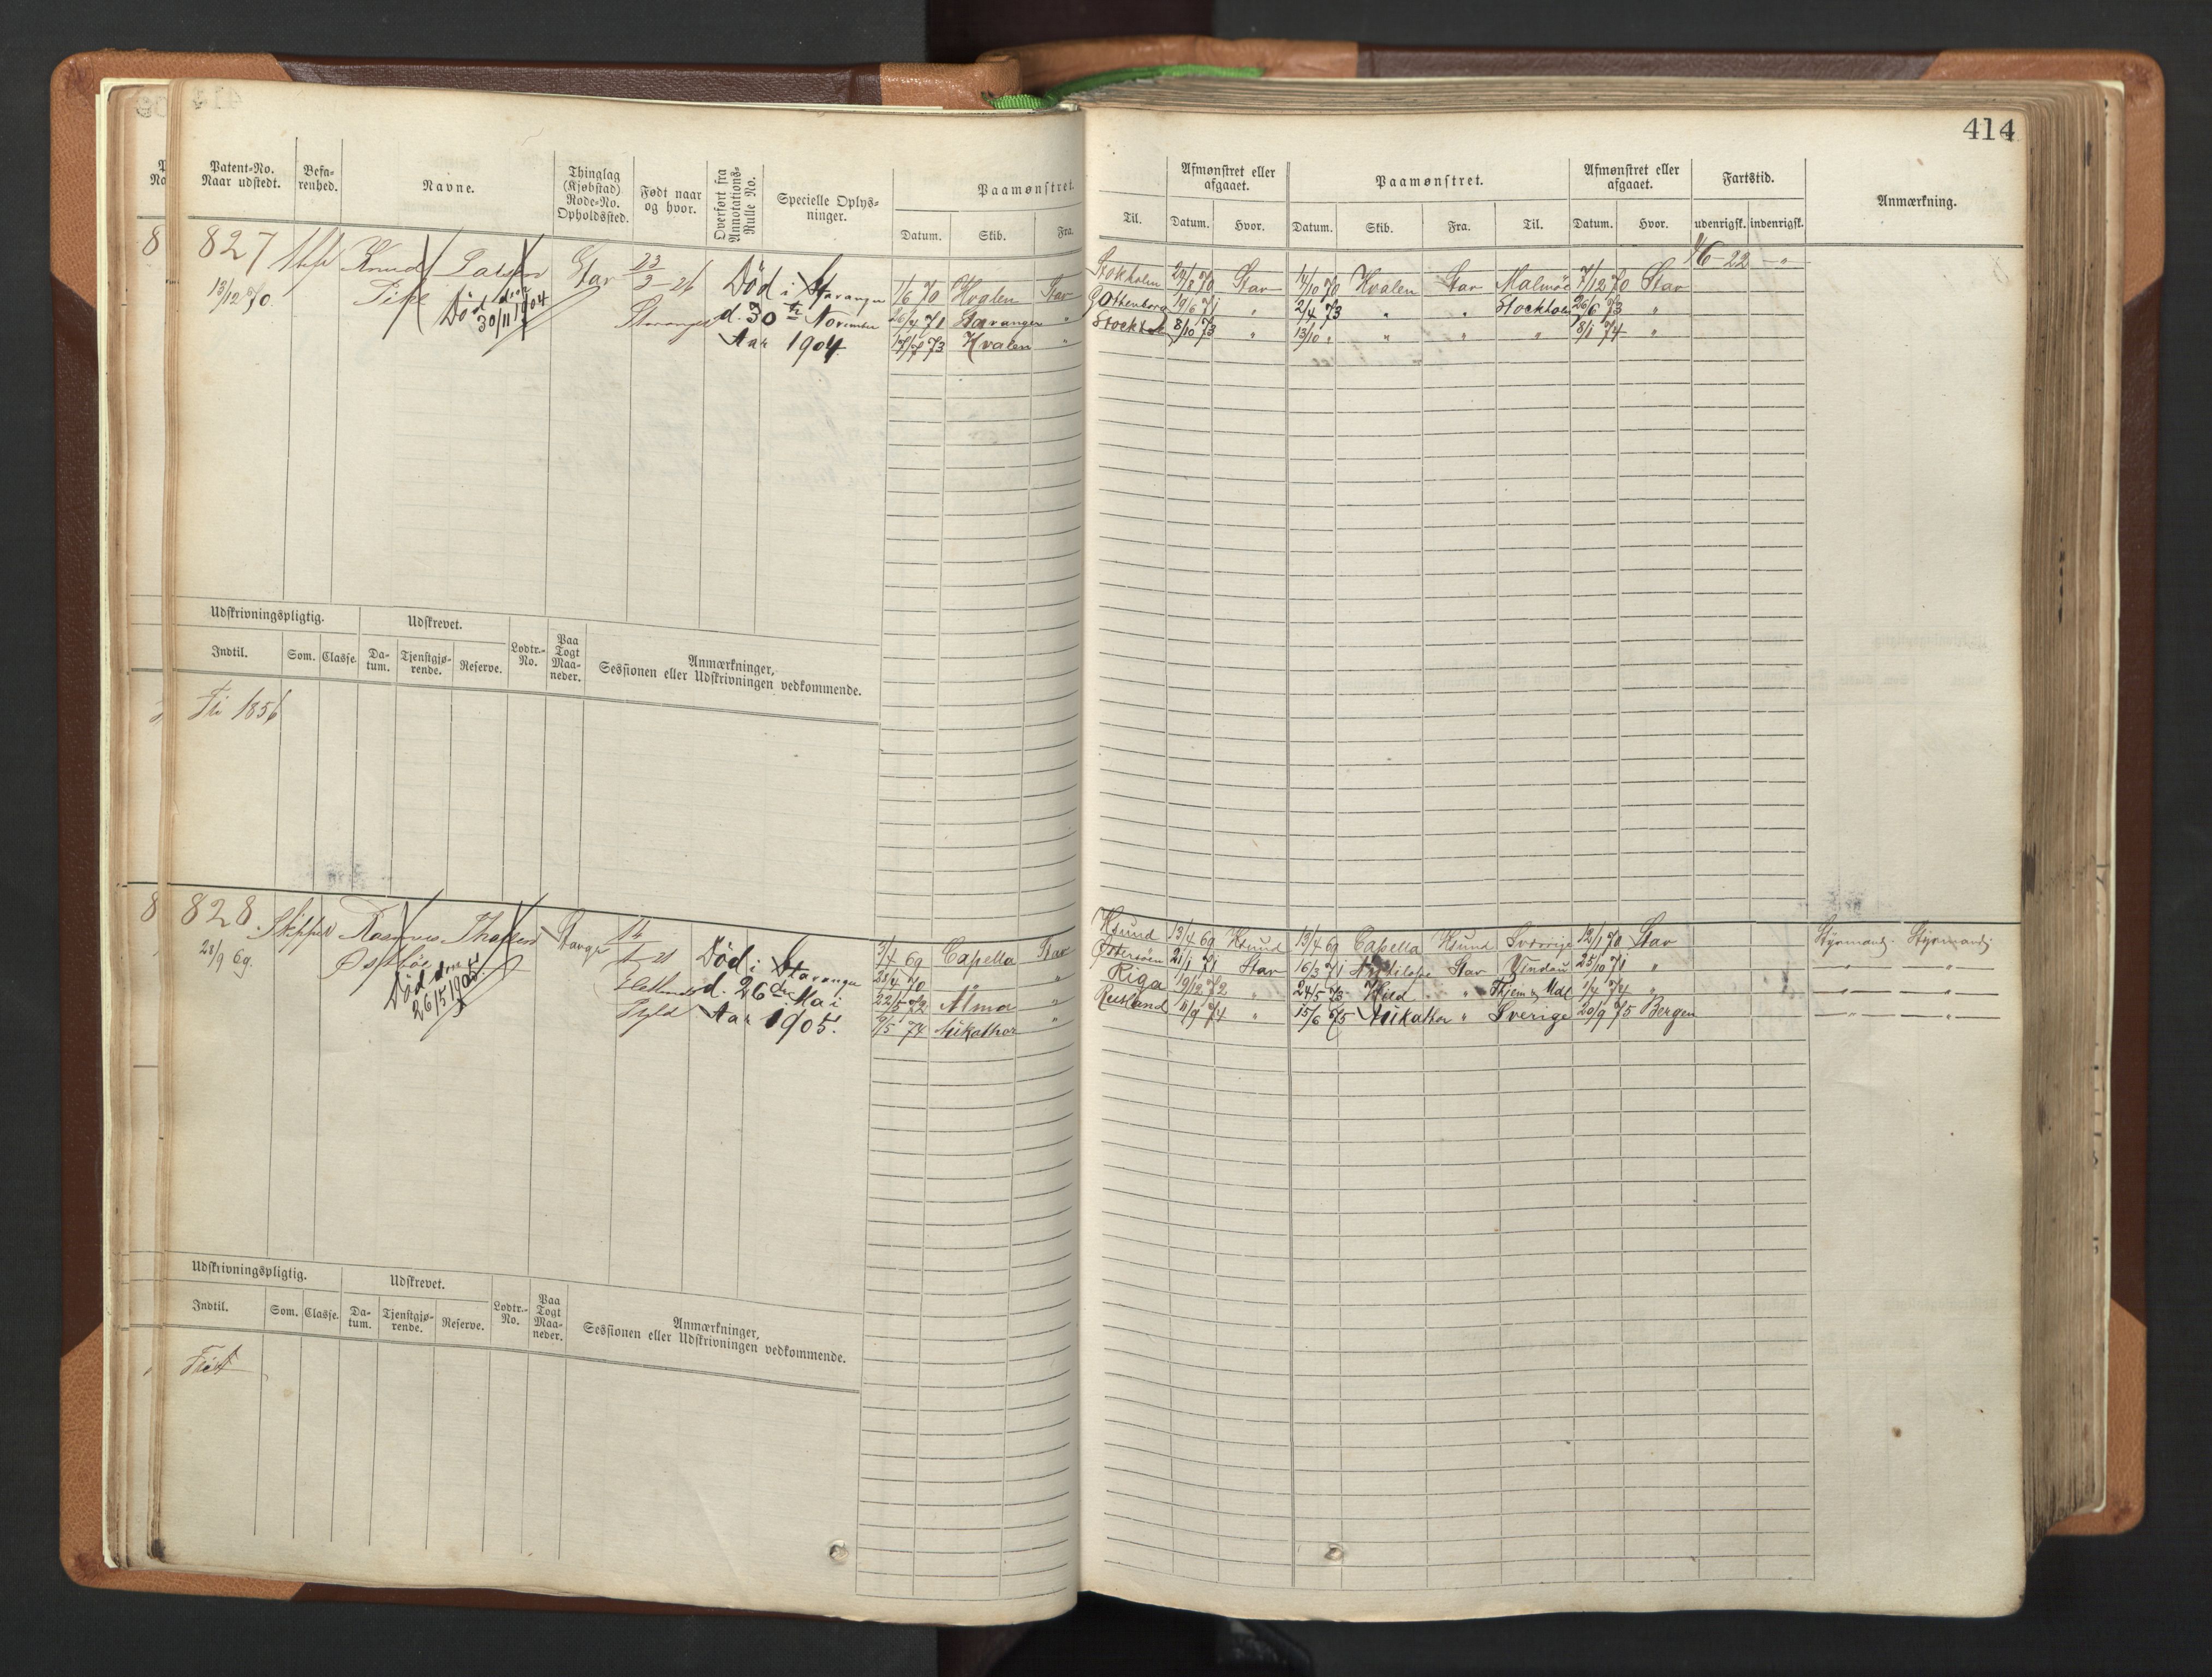 414
Patent-No.
Naar udstedt.
Befa-
renhed.
Navne.
Thinglag
(Kjøbstad)
Rode-No.
Opholdssted.
Født naar
og hvor.
Overført fra
Annotations-
Rulle No.
Specielle Oplys-
ninger.
Paamønstret.
Datum. Skib. Fra.
Til.
Afmønstret eller
afgaaet.
Datum. Hvor.
Paamønstret.
Datum. Skib. Fra. Til.
Afmønstret eller
afgaaet.
Datum. Hvor.
Fartstid.
udenrigsk. indenrigsk.
Anmærkning.
8
827
13/12 70.
Knud Larsen
Tike
Død den
30/11 1904
Stav
23
3 21
Stavanger
Død i Stavanger
d. 30te November
Aar 1904
1/6 70 Hvalen Stav
26/4 71 Stavanger "
17/7 73 Hvalen "
Stokholm 24/8 70 Stav 14/10 70 Hvalen Stav Malmöe 7/12 70 Stav
Gottenborg 19/6 71 " 2/4 73 " " Stockholm 26/6 73 "
Stockholm 8/10 73 " 13/10 " " " " 8/1 74 "
46-22 "
Udskrivningspligtig.
Udskrevet.
Indtil. Som. Classe.
Da-
tum.
Tjenstgjø-
rende.
Reserve.
Lodtr.-
No.
Paa
Togt
Maa-
neder.
Anmærkninger,
Sessionen eller Udskrivningen vedkommende.
Fri 1856
8
828.
23/9 69.
Skipper
Rasmus Thorsen
Østbøe
Død den
26/5 1905
Stavgr
14
1 21
Hetland
Fyld
Død i Stavanger
d. 26de Mai
Aar 1905.
3/4 69 Capella Stav
23/4 70 " "
22/5 72 Alma "
9/5 74 Nikathor "
Ksund 13/4 69 Ksund 13/4 69 Capella Ksund Sverrige 12/1 70 Stav
Østersøen 21/1 71 Stav 16/3 71 Antilope Stav Vindau 25/10 71 "
Riga 19/12 72 " 24/5 73 Hild " Thjem & Mdl 1/4 74 "
Rusland 11/9 74 " 15/6 75 Nikathor " Sverige 20/9 75 Bergen
Styrmand. Styrmand.
— " — — " —
— " — — " —
— " — — " —
Udskrivningspligtig.
Udskrevet.
Indtil. Som. Classe.
Da-
tum.
Tjenstgjø-
rende.
Reserve.
Lodtr.-
No.
Paa
Togt
Maa-
neder.
Anmærkninger,
Sessionen eller Udskrivningen vedkommende.